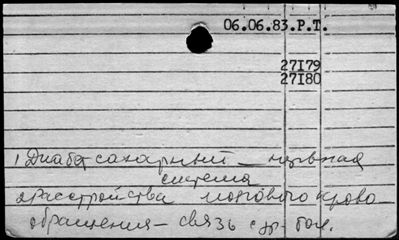 06.06.83.Р.Т.
27I79
27I80
1 Диабет сахарный – нервная
система
2 Расстройства мозгового крово-
обращения – связь с др. бол.